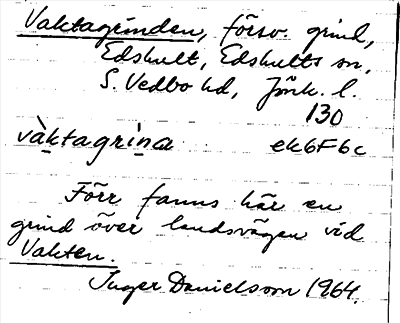 Vaktagrinden, försv. grind,
Edshult, Edshults sn,
S. Vedbo hd, Jönk. l.
130
vàktagrina ek6F6c
Förr fanns här en
grind över landsvägen vid
Vakten.
Inger Danielsson 1964.